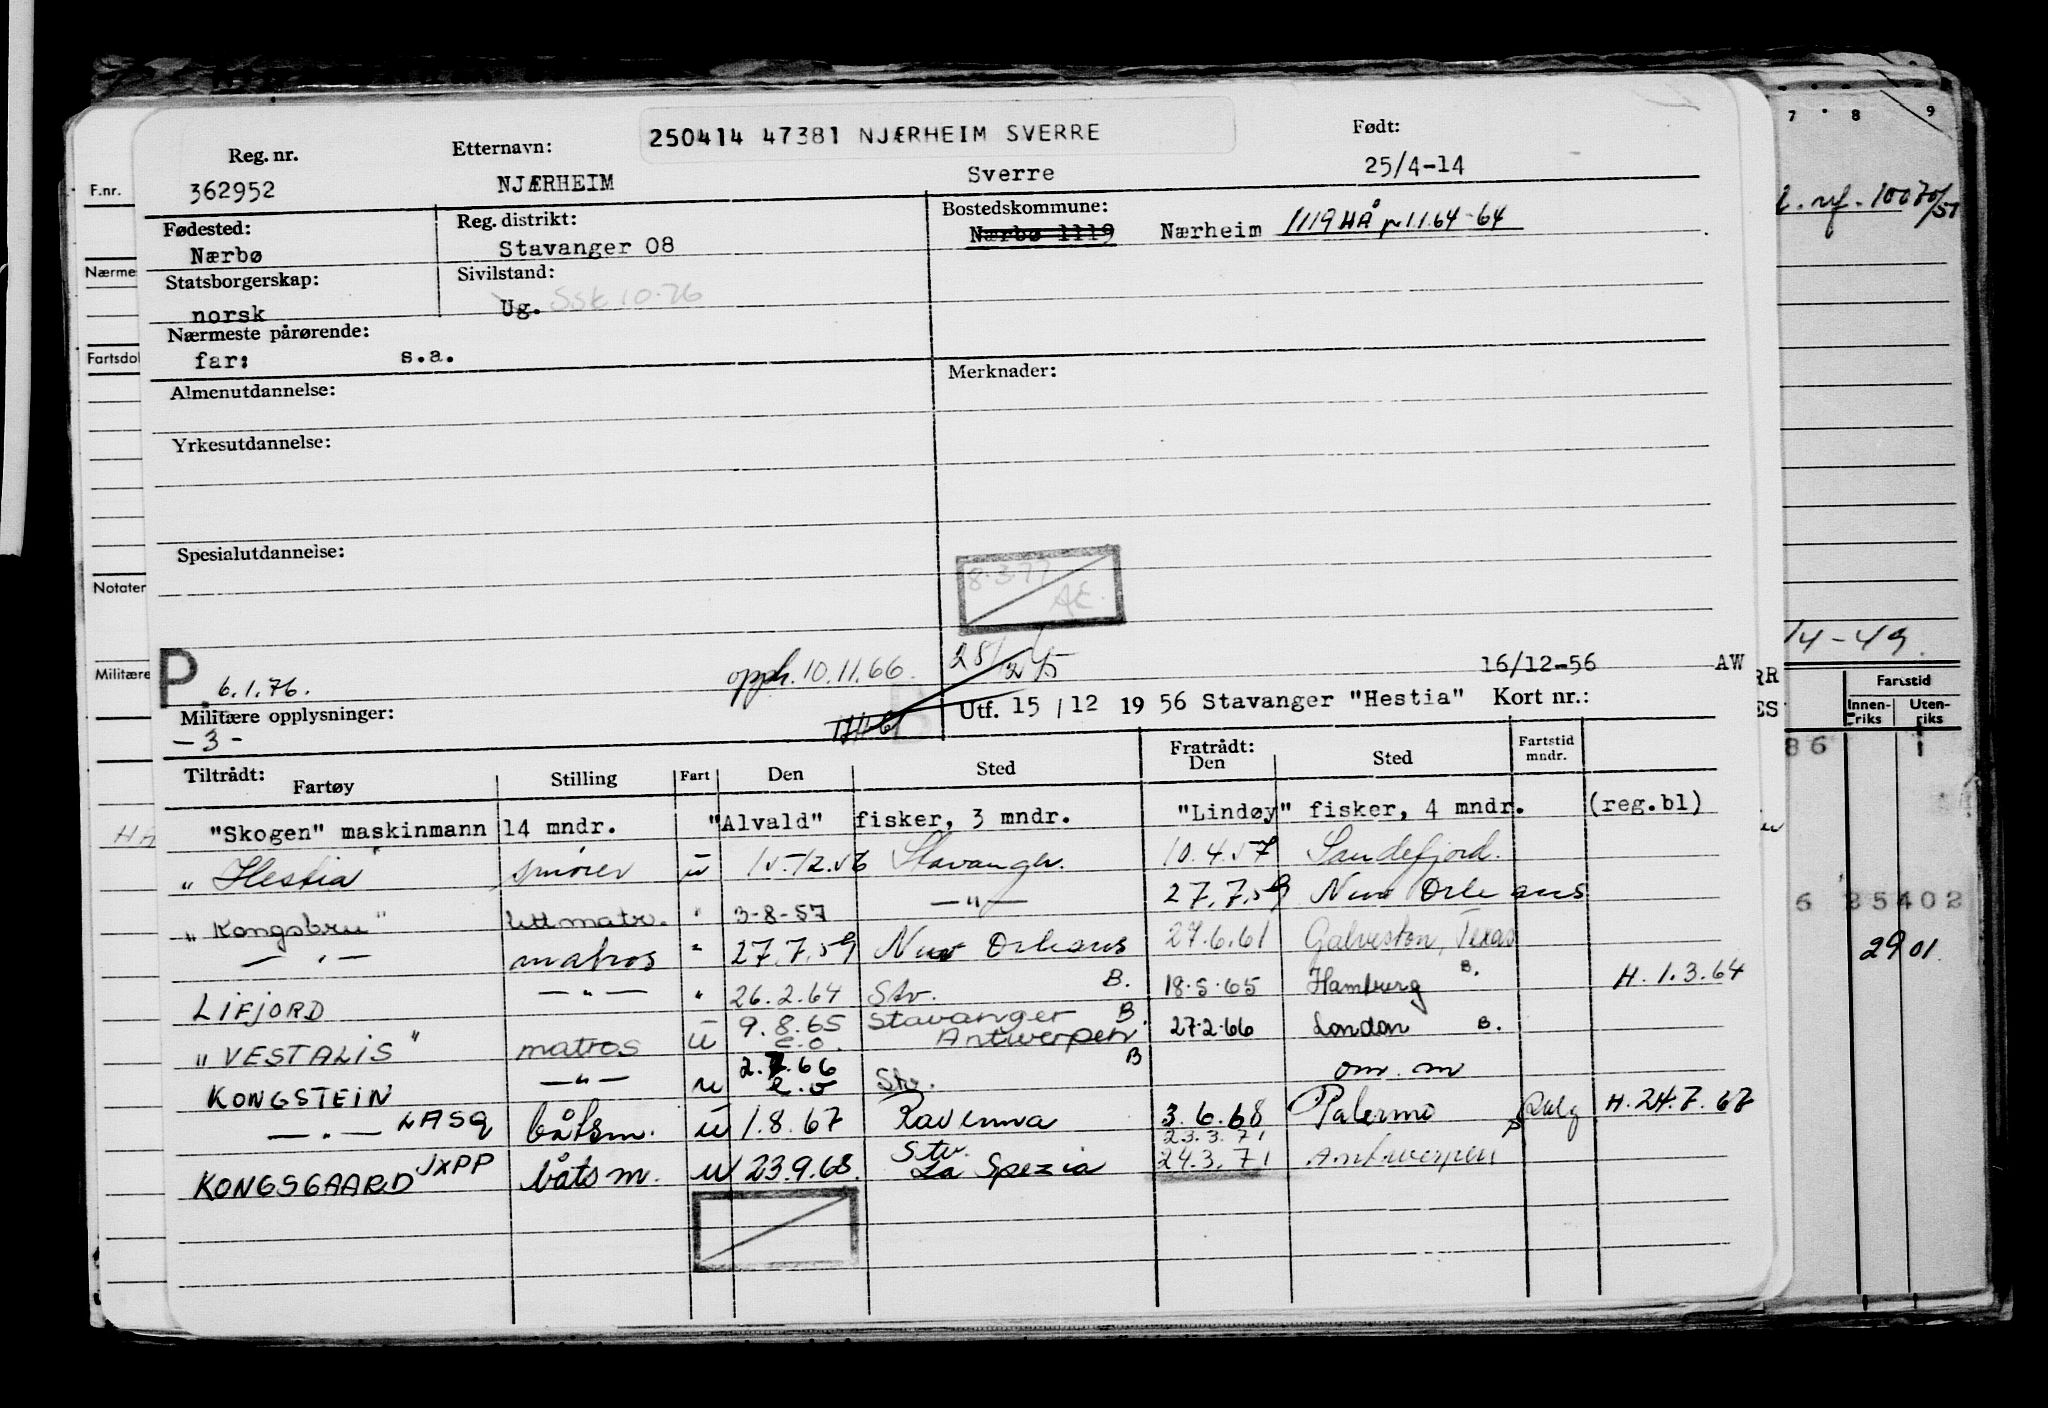 250414 47381 NJÆRHEIM SVERRE
Reg. nr. Etternavn: Født:
362952 NJÆRHEIM Sverre 25/4-14
Fødested: Reg. distrikt: Bostedskommune:
Nærbø Stavanger 08 Nærbø 1119 Nærheim 1119 HÅ pr 1.1.64-64
Statsborgerskap: Sivilstand:
norsk Ug. Ssk 10.76
Nærmeste pårørende:
far: s.a.
Almenutdannelse: Merknader:
Yrkesutdannelse:
Spesialutdannelse:
8.3.77
AE.
P. 6.1.76. opph. 10.11.66 16/12-56 AW
Militære opplysninger: Utf. 15/12 1956 Stavanger "Hestia" Kort nr.:
- 3 -
Tiltrådt: Fratrådt:
Fartøy Stilling Fart Den Sted Den Sted Fartstid mndr.
"Skogen" maskinmann 14 mndr. "Alvald" fisker, 3 mndr. "Lindøy" fisker, 4 mndr. (reg.bl)
"Hestia" smører u 15.12.56 Stavanger. 10.4.57 Sandefjord.
"Kongsbru" lettmatr. " 3-8-57 — " — 27.7.59 New Orleans
— " — matros " 27.7.59 New Orleans 27.6.61 Galveston, Texas
LIFJORD — " — " 26.2.64 Stv. B. 18.5.65 Hamburg B. H. 1.3.64
"VESTALIS" matros u 9.8.65 Stavanger B 27.2.66 London B.
e.o. Antwerpen
KONGSTEIN — " — u 2.7.66 Stv. B om. m
e.o
— " — LASQ båtsm. u 1.8.67 Ravenna 3.6.68 Palermo H. 24.7.67
KONGSGAARD JXPP båtsm. u 23.9.68. Stv. 23.3.71
La Spezia 24.3.71 Antwerpen
F.nr.
Nærmes
Fartsdol
Notater
Militære
HA
7 8 9
10070/51
14-49.
RR
ES
Fartstid
Innen-riks Uten-riks
86 1
6 25402
2901